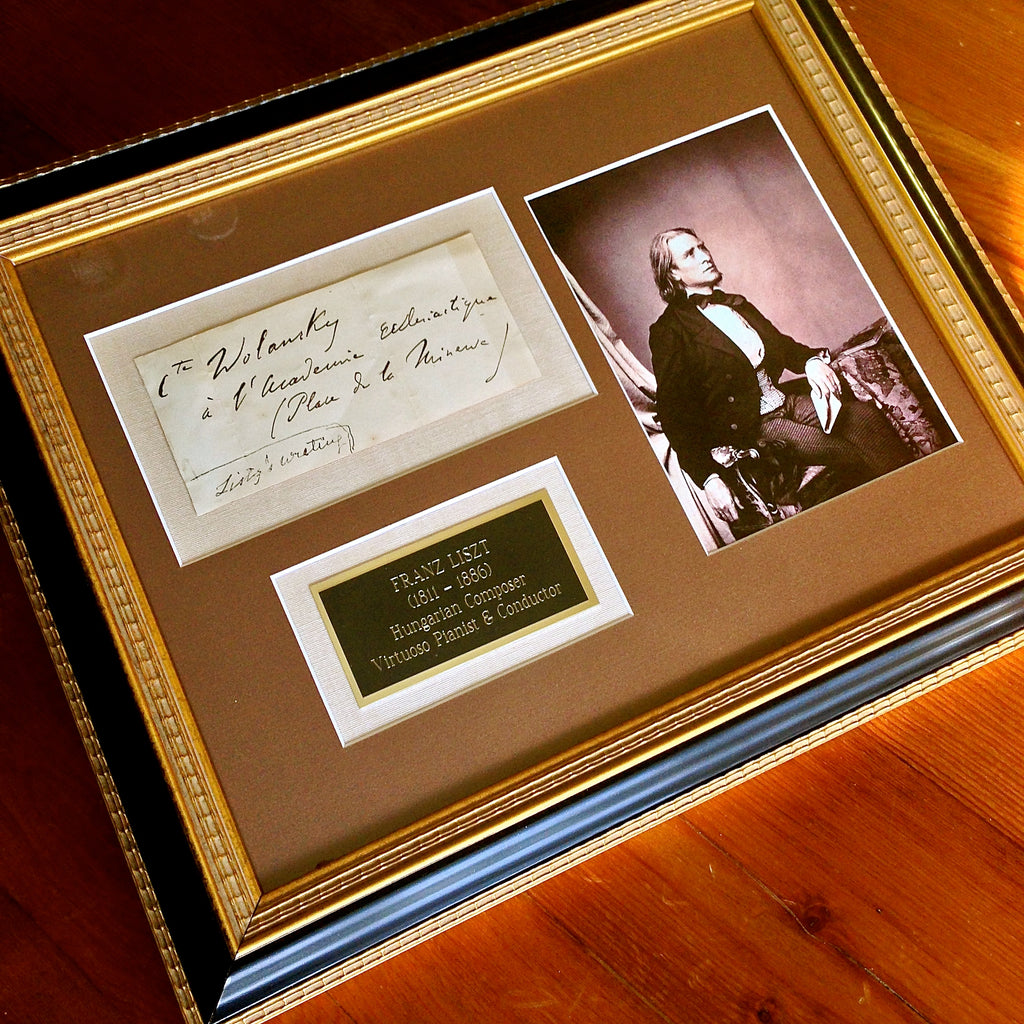 Cte Wolansky
à l'Academie ecclesiastique
(Place de la Minerve)
Liszt's writing
FRANZ LISZT
(1811 - 1886)
Hungarian Composer
Virtuoso Pianist & Conductor